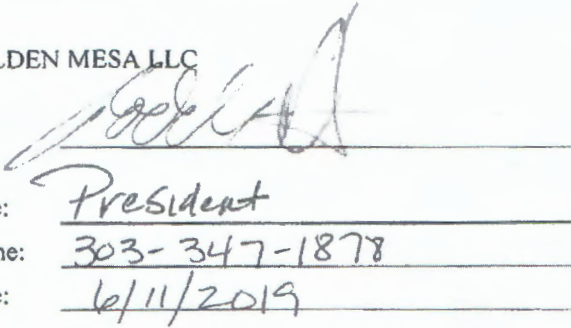 LDEN MESA LLC
e: President
ne: 303-347-1878
e: 6/11/2019